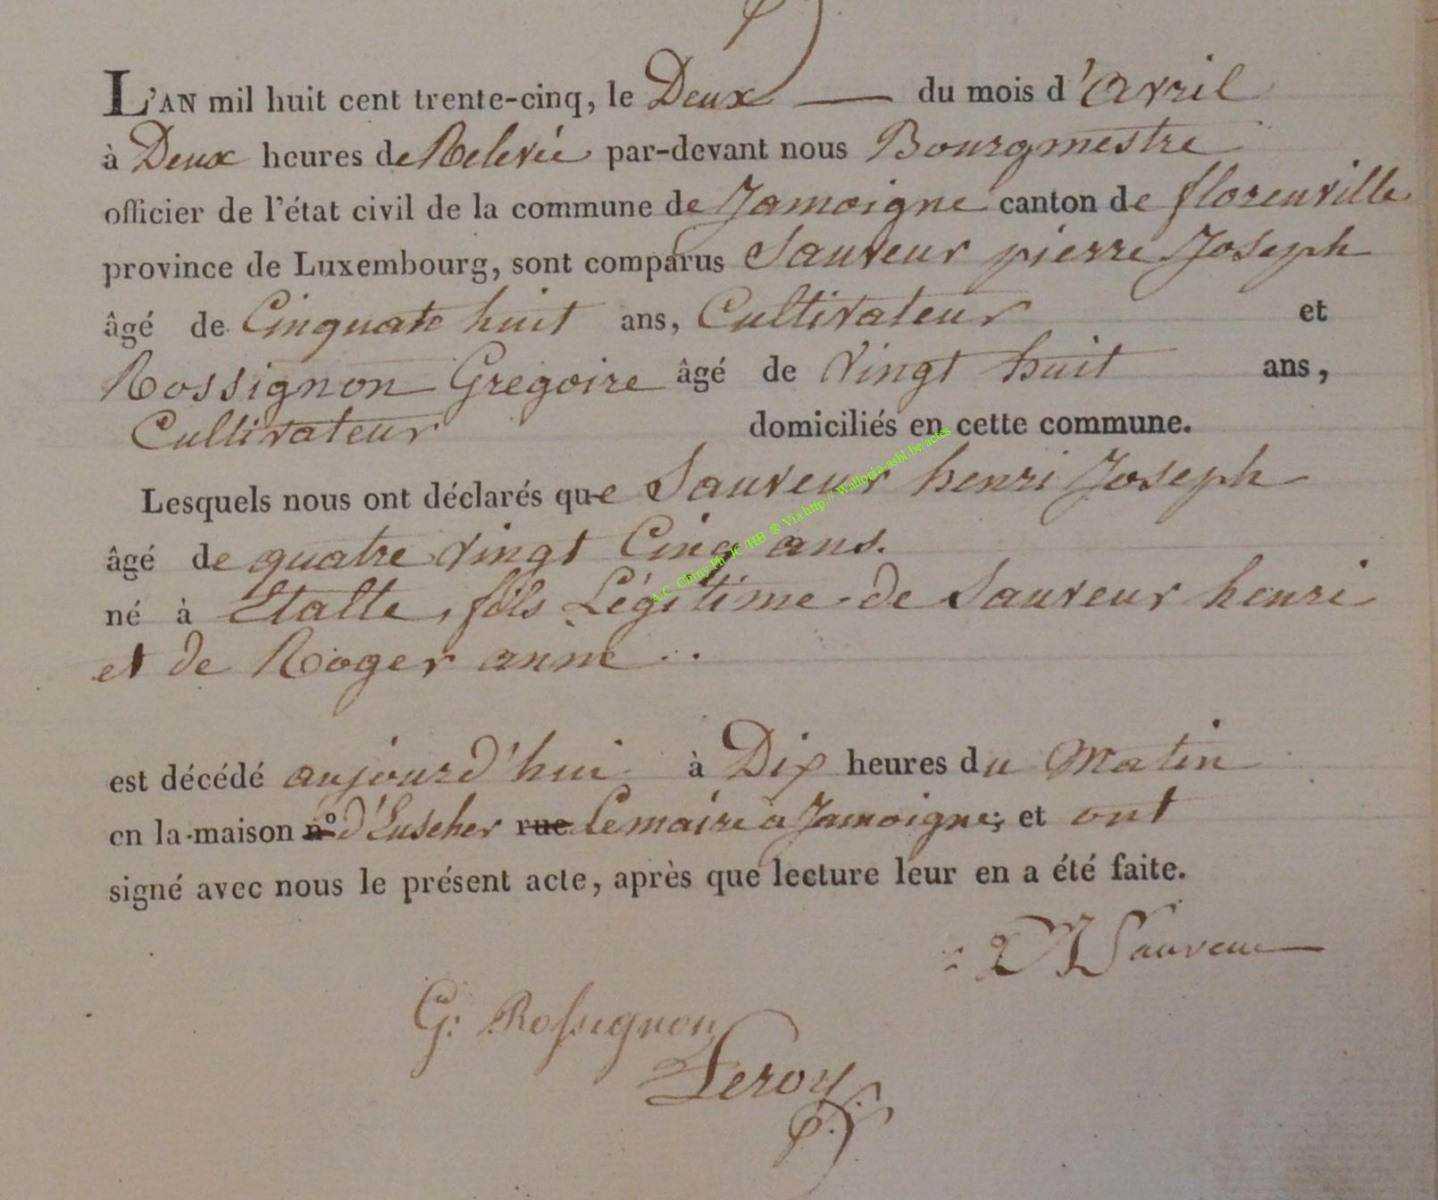 L'AN mil huit cent trente-cinq, le Deux — du mois d'Avril
à Deux heures de Relevée par-devant nous Bourgmestre
officier de l'état civil de la commune de Jamoigne canton de florenville
province de Luxembourg, sont comparus Sauveur pierre Joseph
âgé de Cinquate huit ans, Cultivateur et
Rossignon Gregoire âgé de Vingt huit ans,
Cultivateur domiciliés en cette commune.
Lesquels nous ont déclarés que Sauveur henri Joseph
âgé de quatre Vingt Cinq ans.
né à Etalle, fils Légitime de Sauveur henri
et de Roger anne
est décédé aujourd'hui à Dix heures du Matin
en la maison n° d'Euscher rue Lemaire à Jamoigne; et ont
signé avec nous le présent acte, après que lecture leur en a été faite.
Sauveur
G: Rossignon
Leroy